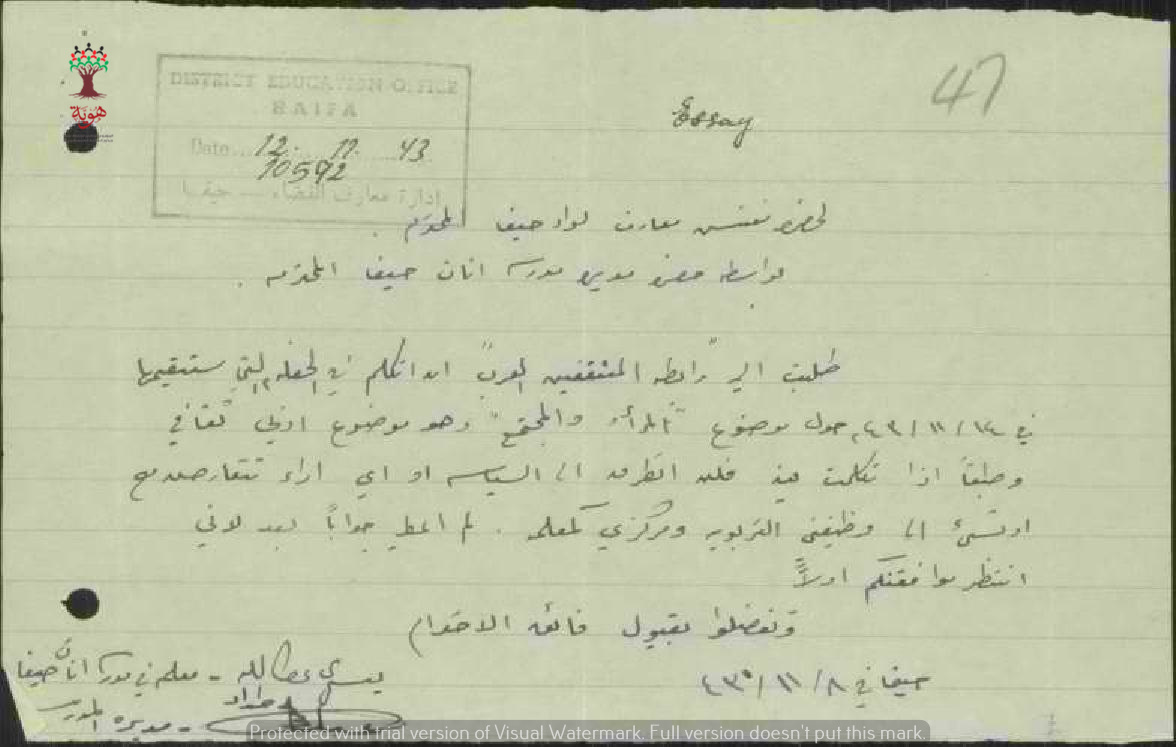 47
Essay
هَوِيَّة
DISTRICT EDUCATION OFFICE
HAIFA
Date 12. 11. 43
10592
ادارة معارف القضاء حيفا
لحضرة مفتش معارف لواء حيفا المحترم .
بواسطة حضرة مديرة مدرسة اناث حيفا المحترمه .
طلبت الي "رابطه المثقفين العرب" ان اتكلم في الحفله التي ستقيمها
في ١٤ / ١١ / ٤٣ حول موضوع "المرأة والمجتمع" وهو موضوع ادبي ثقافي
وطبعاً اذا تكلمت فيه فلن اتطرق الى السياسه او اي اراء تتعارض مع
او تسئ الى وظيفتي التربويه ومركزي كمعلمه . لم اعط جواباً بعد لاني
انتظر موافقتكم اولاً
وتفضلوا بقبول فائق الاحترام
حيفا في ٨ / ١١ / ٤٣
يسرى عطالله - معلمه في مدرسة اناث حيفا
- مديرة المدرسه
Protected with trial version of Visual Watermark. Full version doesn't put this mark.